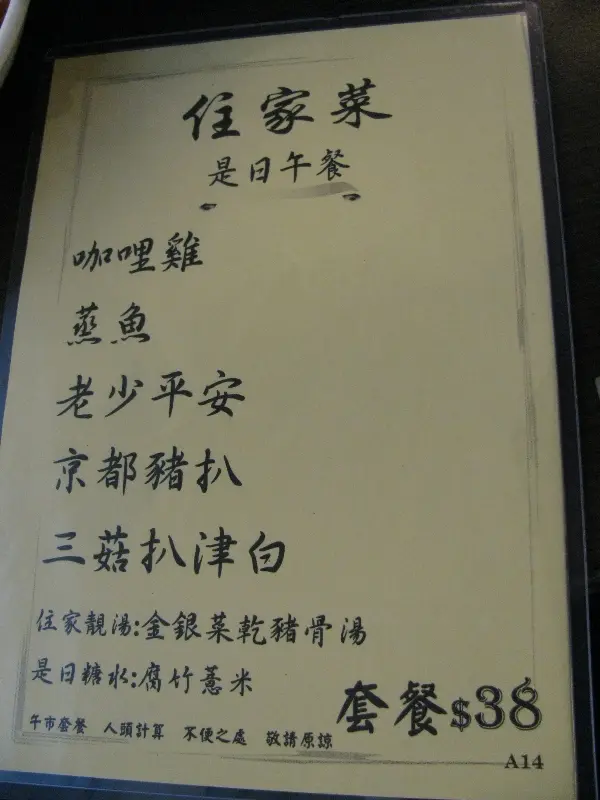 住家菜
是日午餐
咖哩雞
蒸魚
老少平安
京都豬扒
三菇扒津白
住家靚湯:金銀菜乾豬骨湯
是日糖水:腐竹薏米
套餐$38
午市套餐 人頭計算 不便之處 敬請原諒
A14